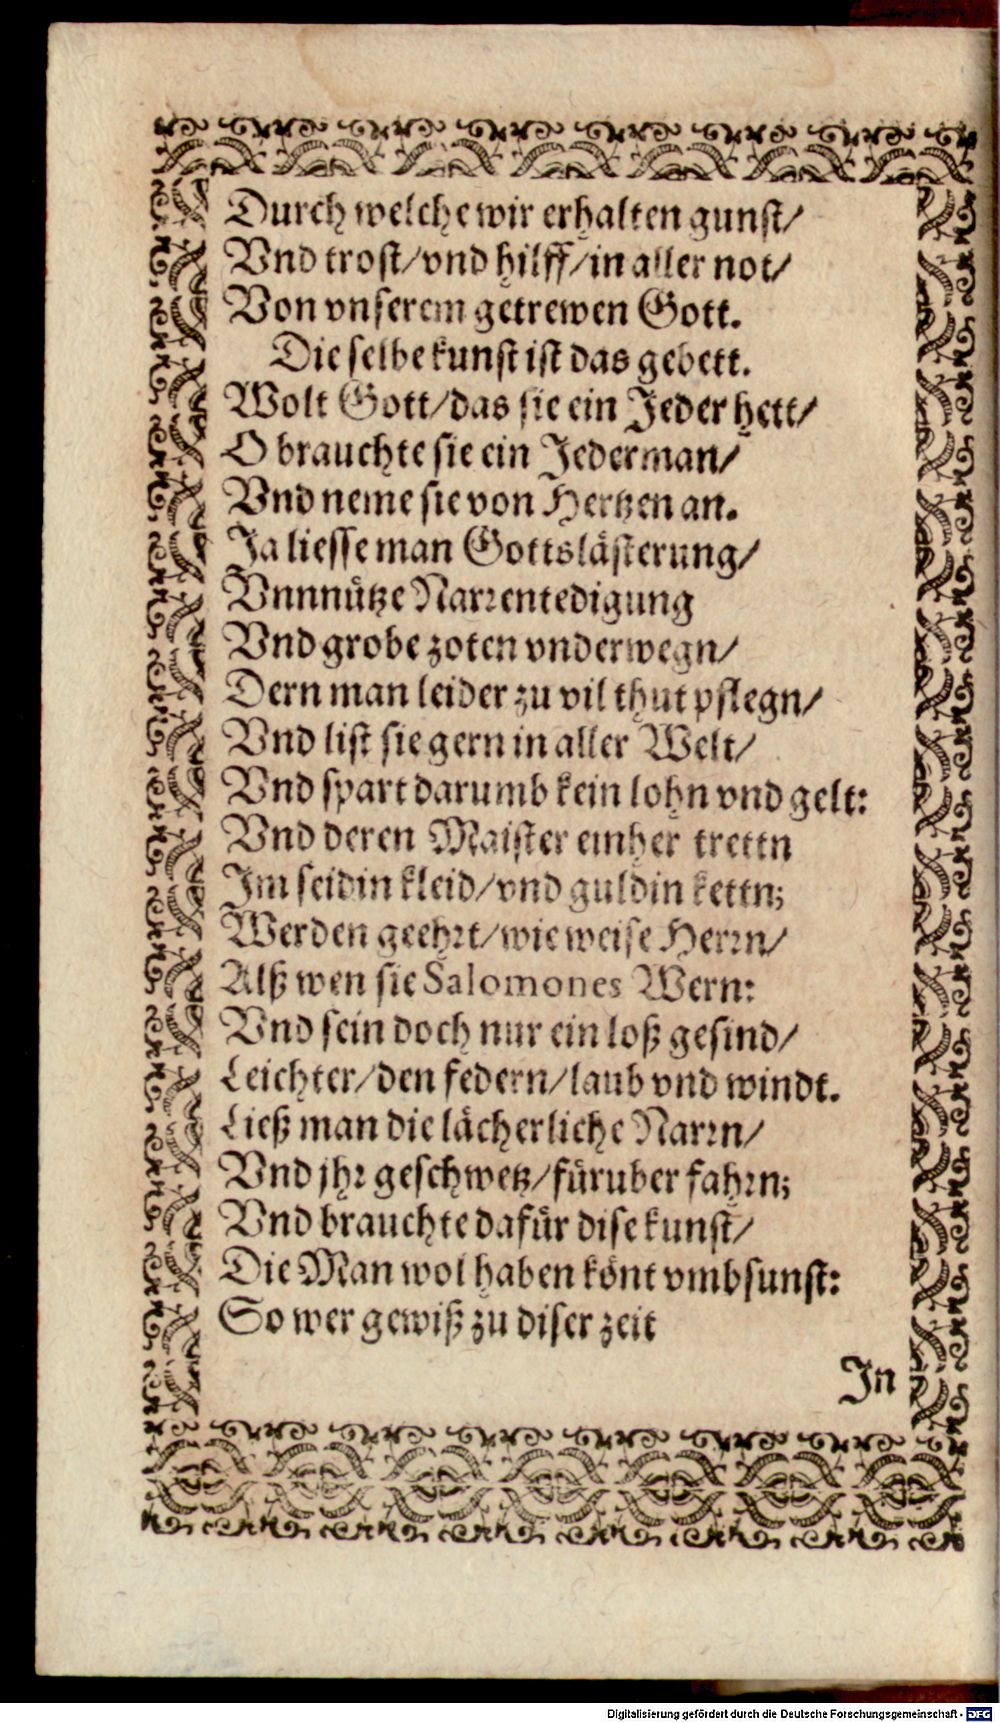 Durch welche wir erhalten gunst/
Vnd trost/vnd hilff/in aller not/
Von vnserem getrewen Gott.
Die selbe kunst ist das gebett.
Wolt Gott/das sie ein Jeder hett/
O brauchte sie ein Jederman/
Vnd neme sie von Hertzen an.
Ja liesse man Gottslästerung/
Vnnnütze Narrentedigung
Vnd grobe zoten vnderwegn/
Dern man leider zu vil thut pflegn/
Vnd list sie gern in aller Welt/
Vnd spart darumb kein lohn vnd gelt:
Vnd deren Maister einher trettn
Im seidin kleid/vnd guldin kettn;
Werden geehrt/wie weise Herrn/
Alß wen sie Salomones Wern:
Vnd sein doch nur ein loß gesind/
Leichter/den federn/laub vnd windt.
Ließ man die lächerliche Narrn/
Vnd jhr geschwetz/füruber fahrn;
Vnd brauchte dafür dise kunst/
Die Man wol haben könt vmbsunst:
So wer gewiß zu diser zeit
In
Digitalisierung gefördert durch die Deutsche Forschungsgemeinschaft - DFG